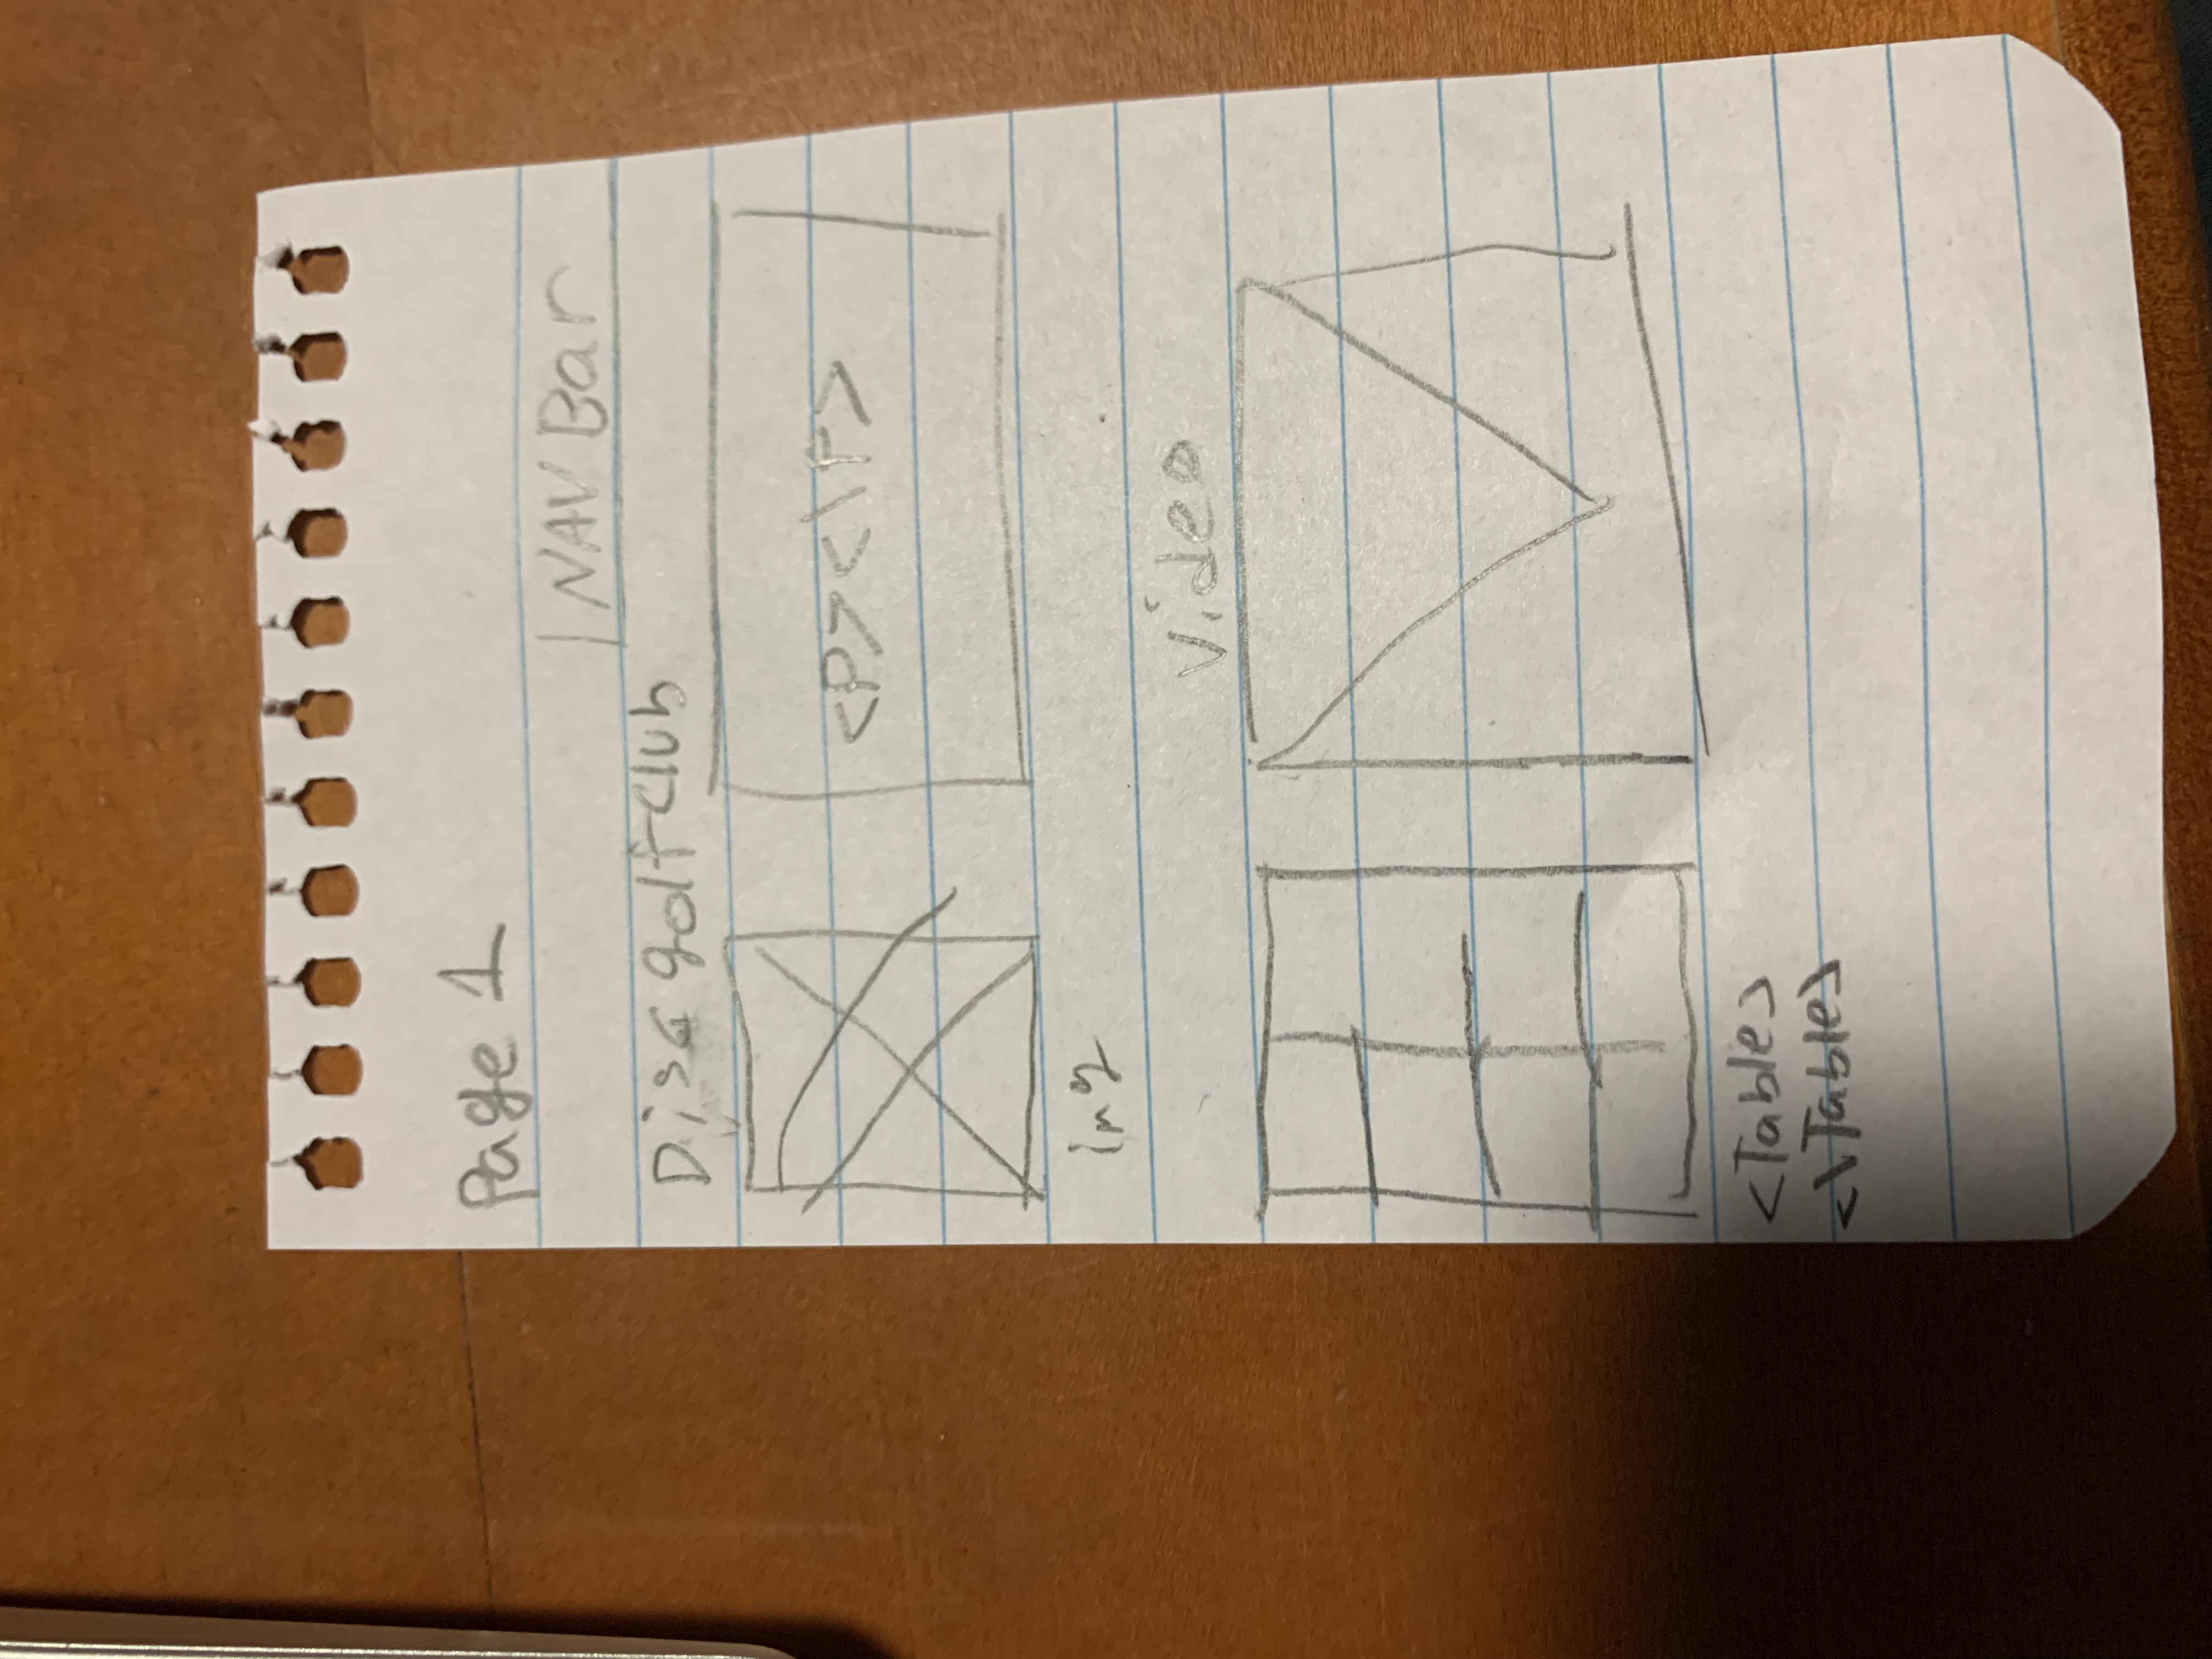 Page 1
NAV Bar
Disc golf club
<P><\P>
img
Video
<Table>
<\Table>